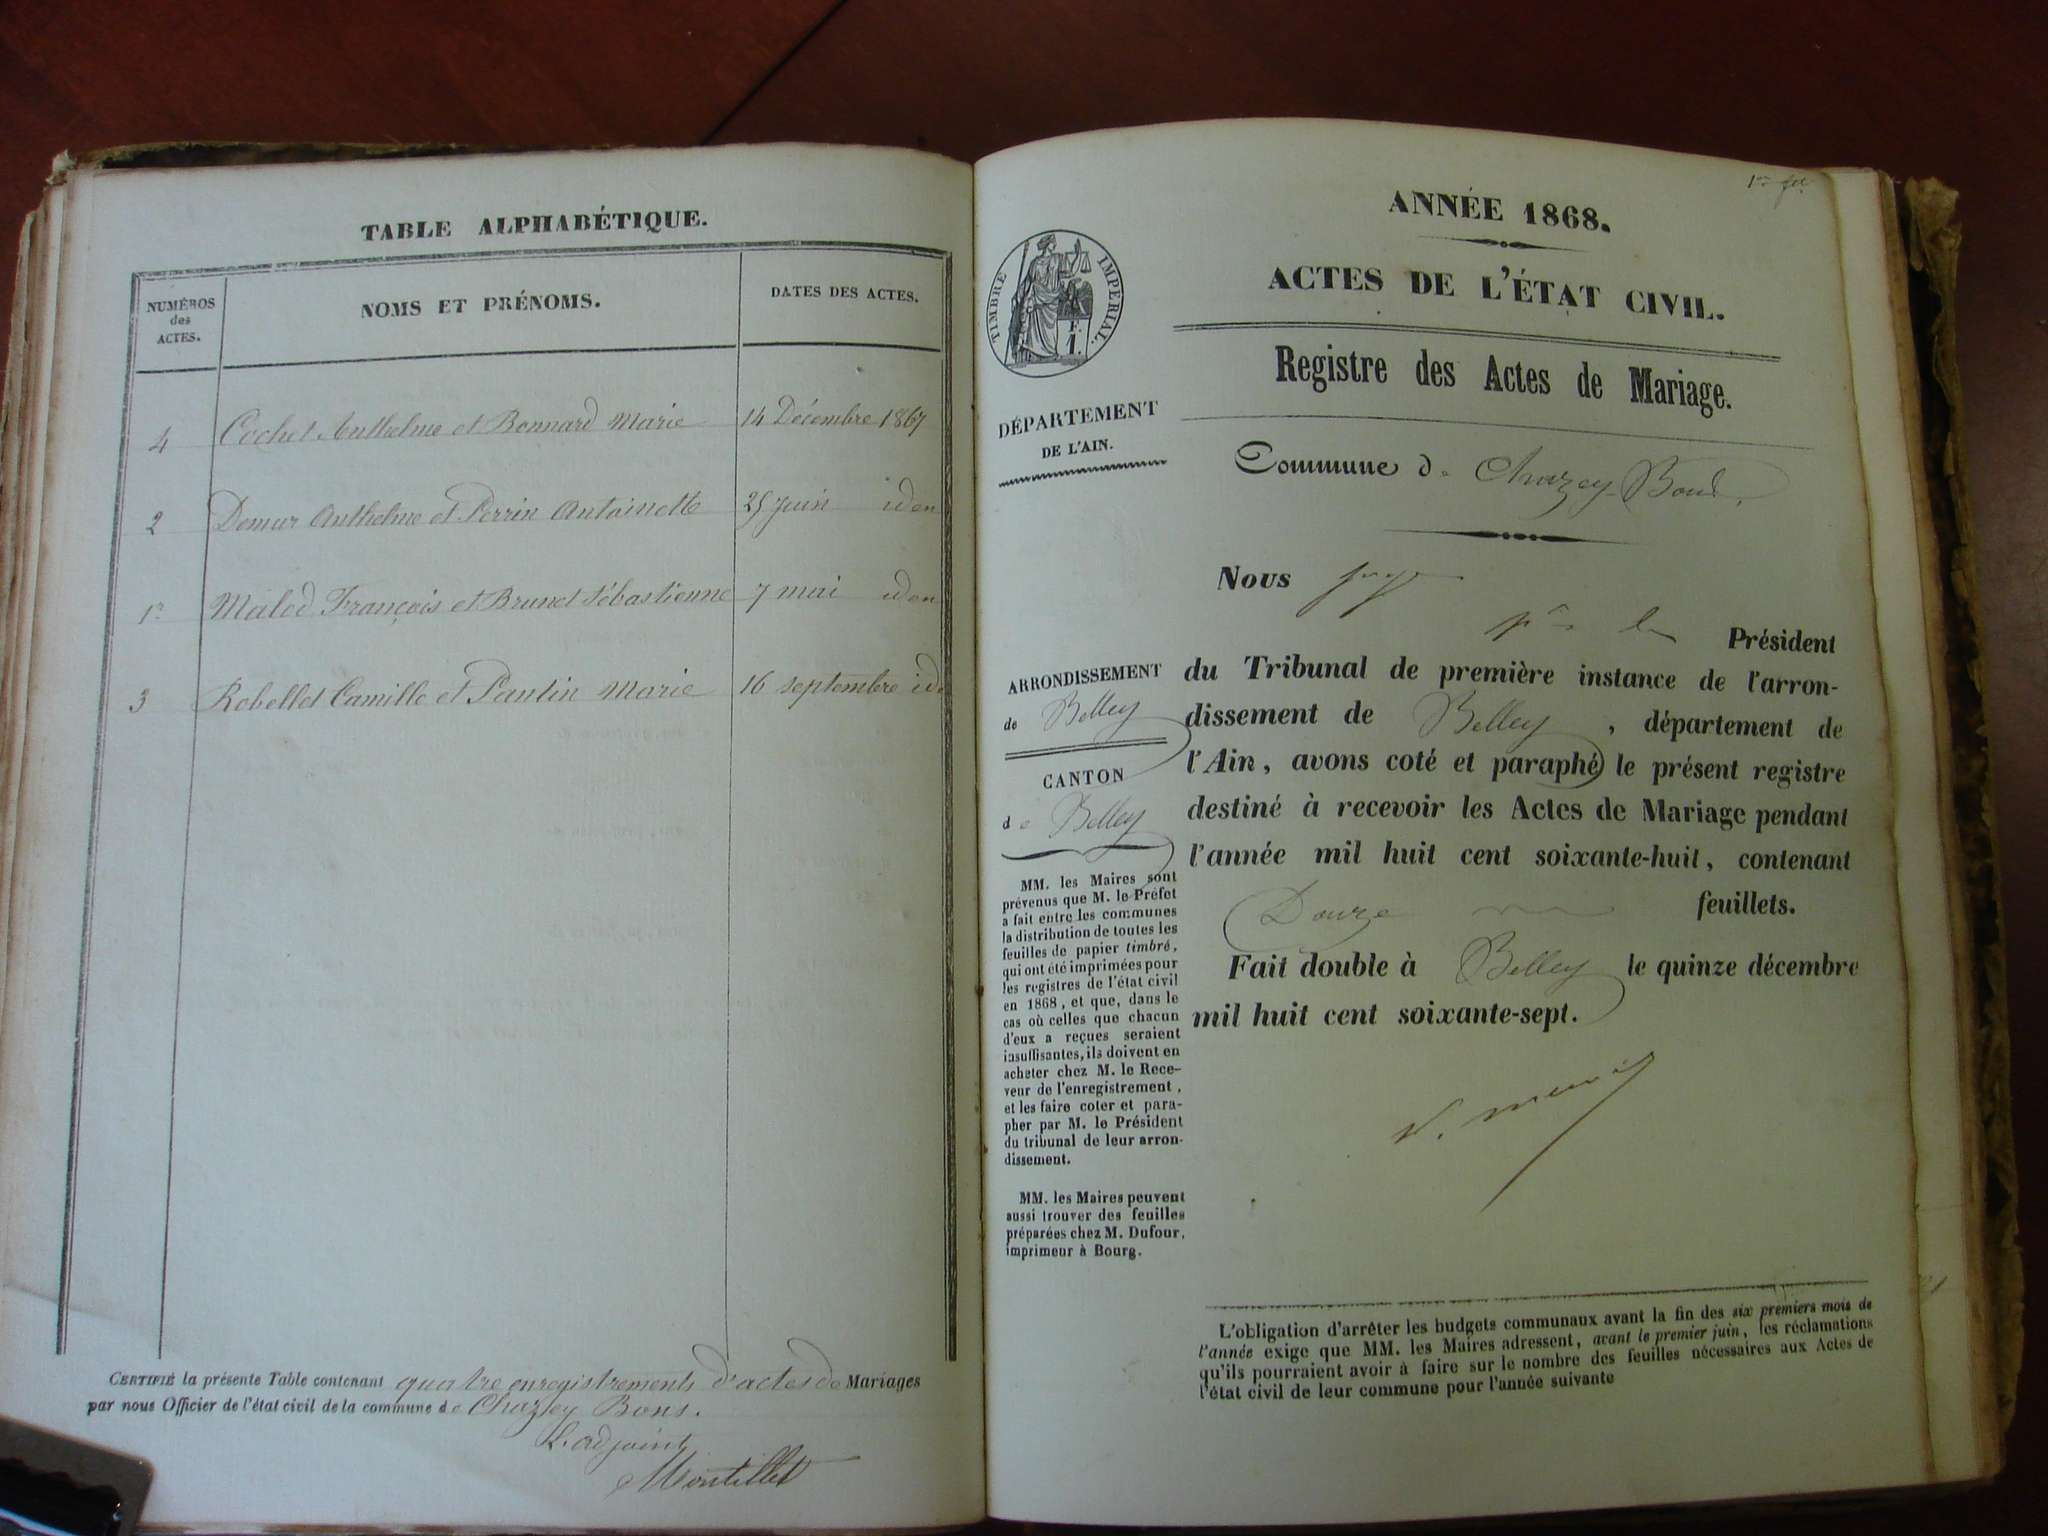 TABLE ALPHABÉTIQUE.
NUMÉROS des ACTES.
NOMS ET PRÉNOMS.
DATES DES ACTES.
4 Cochet Anthelme et Bonnard Marie 14 Décembre 1867
2 Demur Anthelme et Perrin Antoinette 25 juin iden
1r Malod François et Brunet Sébastienne 7 mai iden
3 Rebellet Camille et Pantin Marie 16 septembre id
CERTIFIÉ la présente Table contenant quatre enregistrements d'actes de Mariages
par nous Officier de l'état civil de la commune de Chazey Bons.
L'adjoint
Montillet
ANNÉE 1868.
ACTES DE L'ÉTAT CIVIL.
Registre des Actes de Mariage.
TIMBRE IMPÉRIAL.
DÉPARTEMENT
DE L'AIN.
Commune de Chazey Bons.
Nous juge
Président
du Tribunal de première instance de l'arron-
dissement de Belley, département de
l'Ain, avons coté et paraphé le présent registre
destiné à recevoir les Actes de Mariage pendant
l'année mil huit cent soixante-huit, contenant
Douze feuillets.
Fait double à Belley le quinze décembre
mil huit cent soixante-sept.
ARRONDISSEMENT
de Belley
CANTON
de Belley
MM. les Maires sont
prévenus que M. le Préfet
a fait entre les communes
la distribution de toutes les
feuilles de papier timbré,
qui ont été imprimées pour
les registres de l'état civil
en 1868, et que, dans le
cas où celles que chacun
d'eux a reçues seraient
insuffisantes, ils doivent en
acheter chez M. le Rece-
veur de l'enregistrement,
et les faire coter et para-
pher par M. le Président
du tribunal de leur arron-
dissement.
MM. les Maires peuvent
aussi trouver des feuilles
préparées chez M. Dufour,
imprimeur à Bourg.
L'obligation d'arrêter les budgets communaux avant la fin des six premiers mois de
l'année exige que MM. les Maires adressent, avant le premier juin, les réclamations
qu'ils pourraient avoir à faire sur le nombre des feuilles nécessaires aux Actes de
l'état civil de leur commune pour l'année suivante